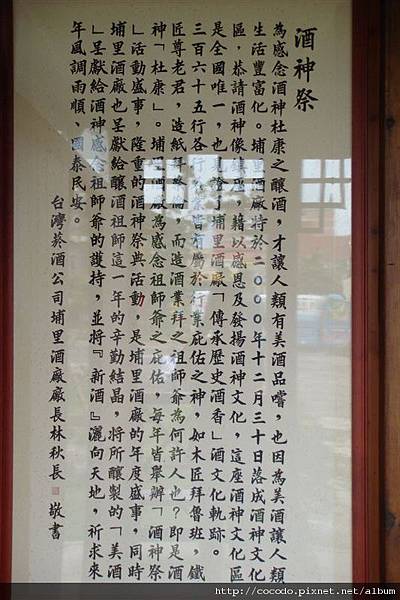 酒神祭
為感念酒神杜康之釀酒，才讓人類有美酒品嚐，也因為美酒讓人類
生活豐富化。埔里酒廠將於二000年十二月三十日落成酒神文化
區，恭請酒神像鎮座，藉以感恩及發揚酒神文化，這座酒神文化區
是全國唯一，也見證了埔里酒廠「傳承歷史酒香」酒文化軌跡。
三百六十五行各行各業皆有屬於行業庇佑之神，如木匠拜魯班，鐵
匠尊老君，造紙拜蔡倫，而造酒業拜之祖師爺為何許人也？即是酒
神「杜康」。埔里酒廠為感念祖師爺之庇佑，每年皆舉辦「酒神祭
」活動盛事，隆重的酒神祭典活動，是埔里酒廠的年度盛事，同時
埔里酒廠也呈獻給釀酒祖師這一年的辛勤結晶，將所釀製的「美酒
」呈獻給酒神感念祖師爺的護持，並將『新酒』灑向天地，祈求來
年風調雨順、國泰民安。
台灣菸酒公司埔里酒廠廠長林秋長 敬書
http://cocodo.pixnet.net/album